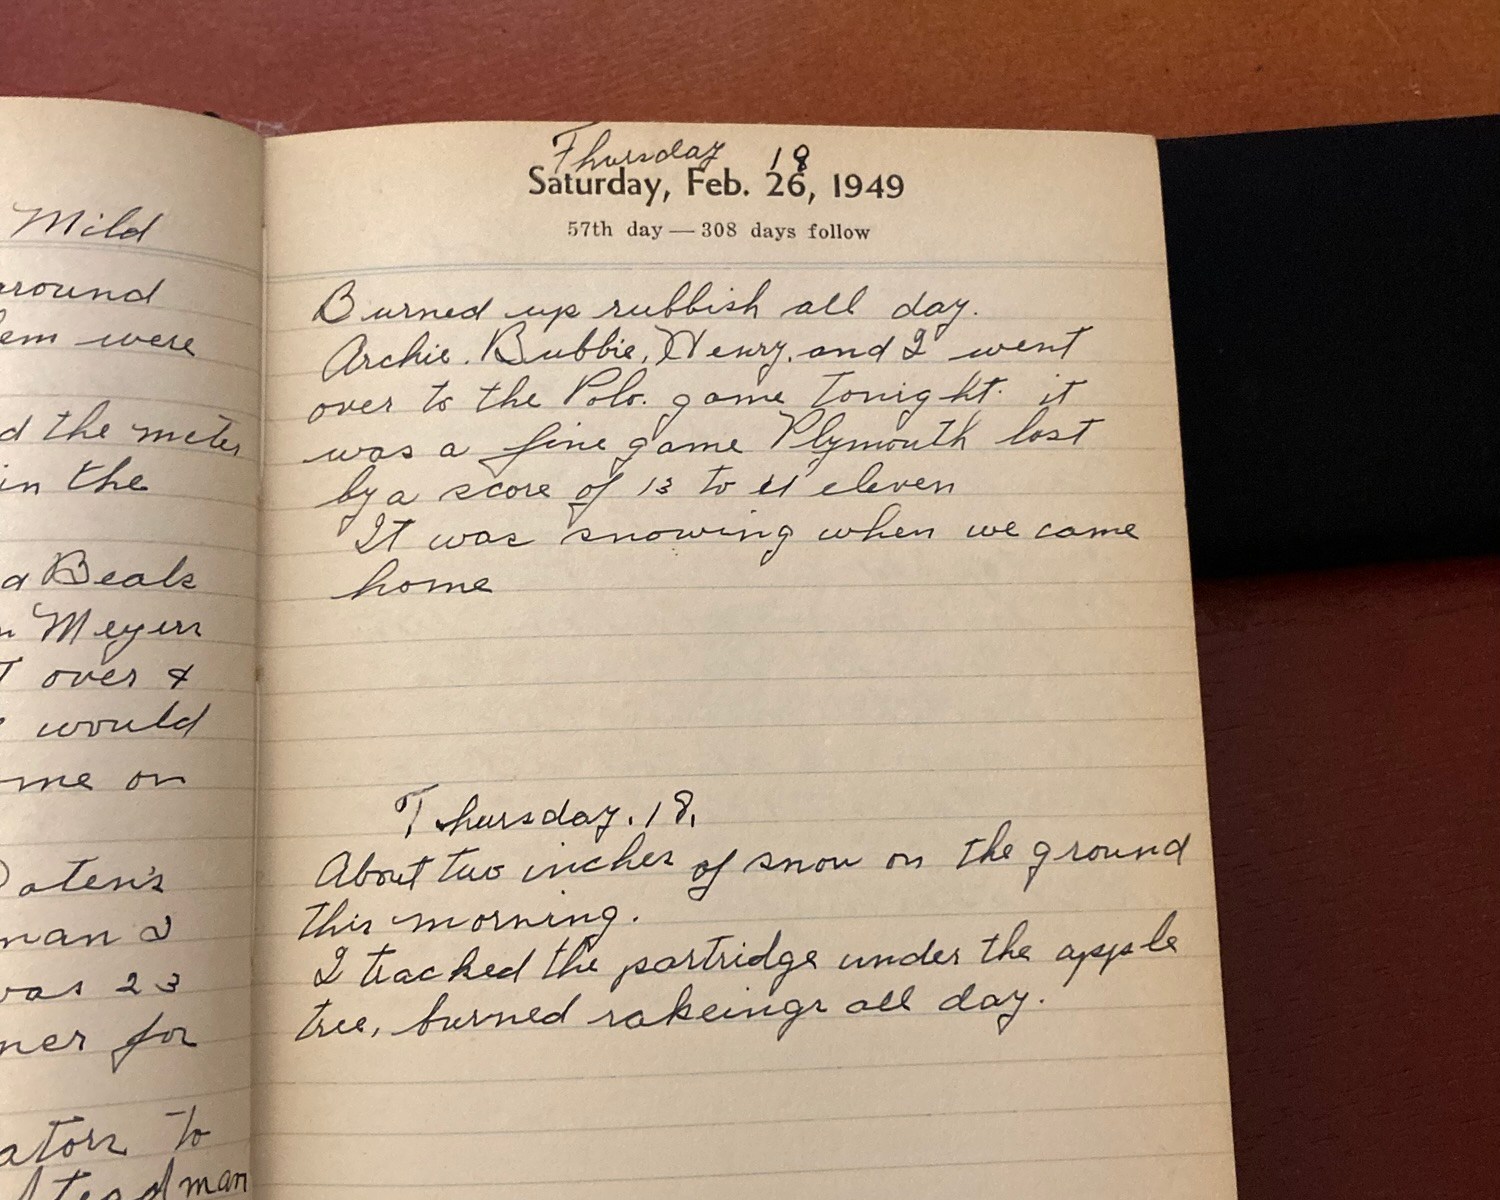 Mild
around
em were
d the meter
in the
a Beals
n Meyers
T over &
would
me on
Oaten's
man I
was 23
ner for
ators to
steadman
Thursday 18
Saturday, Feb. 26, 1949
57th day — 308 days follow
Burned up rubbish all day.
Archie. Bubbie, Henry, and I went
over to the Polo. game tonight. it
was a fine game Plymouth lost
by a score of 13 to 11 eleven
It was snowing when we came
home
Thursday. 18.
About two inches of snow on the ground
this morning.
I tracked the partridge under the apple
tree, burned rakeings all day.